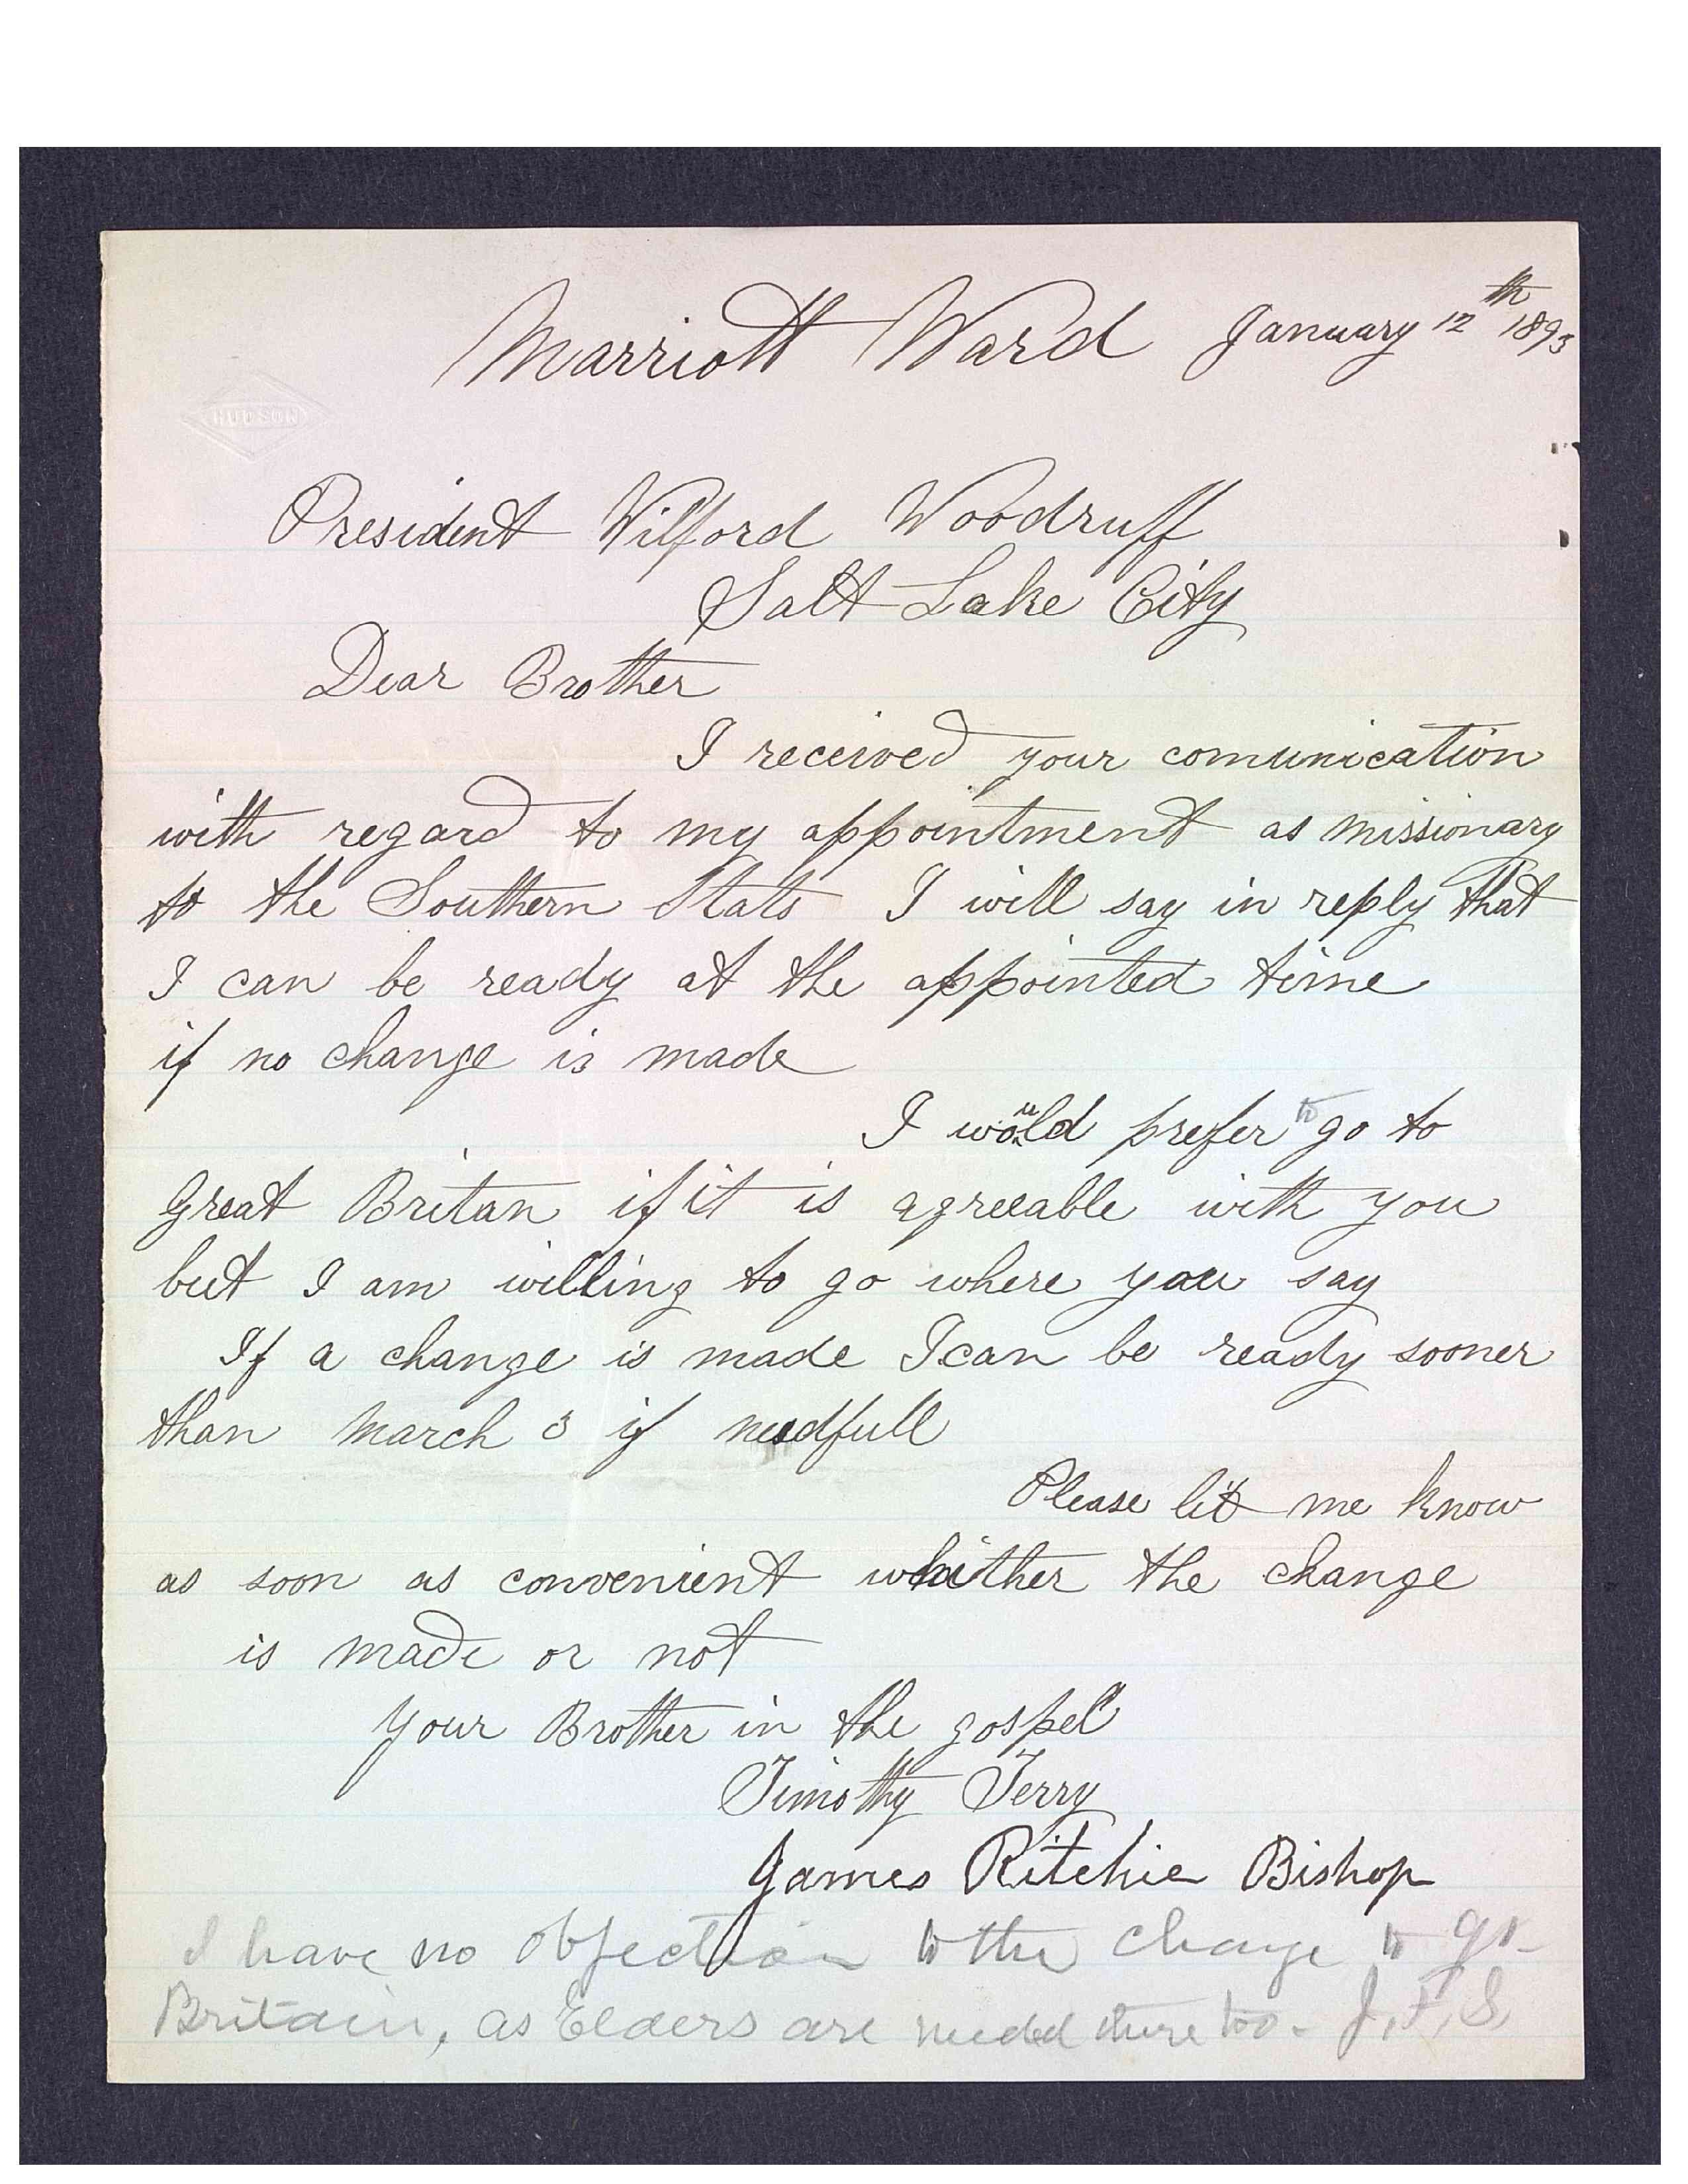 Marriott Ward January 12th 1893
HUDSON
President Wilford Woodruff
Salt Lake City
Dear Brother
I received your comunication
with regard to my appointment as missionary
to the Southern Stats I will say in reply that
I can be ready at the appointed time
if no change is made
I would prefer to go to
Great Britan if it is agreeable with you
but I am willing to go where you say
If a change is made I can be ready sooner
than March 3 if needfull
Please let me know
as soon as convenient whither the change
is made or not
Your Brother in the gospel
Timothy Terry
James Ritchie Bishop
I have no objection to the change to gr.
Britain, as Elders are needed there too. J. F. S.